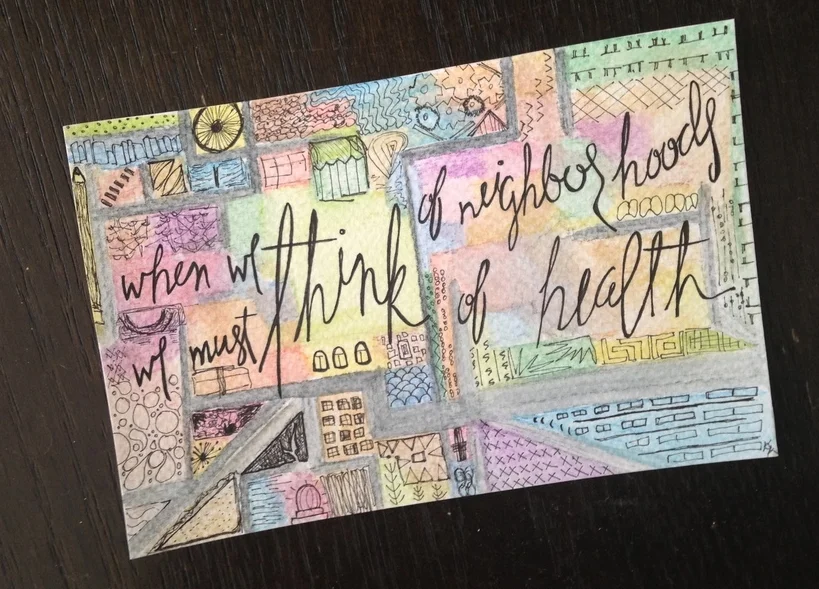 when we think of neighborhoods
we must of health